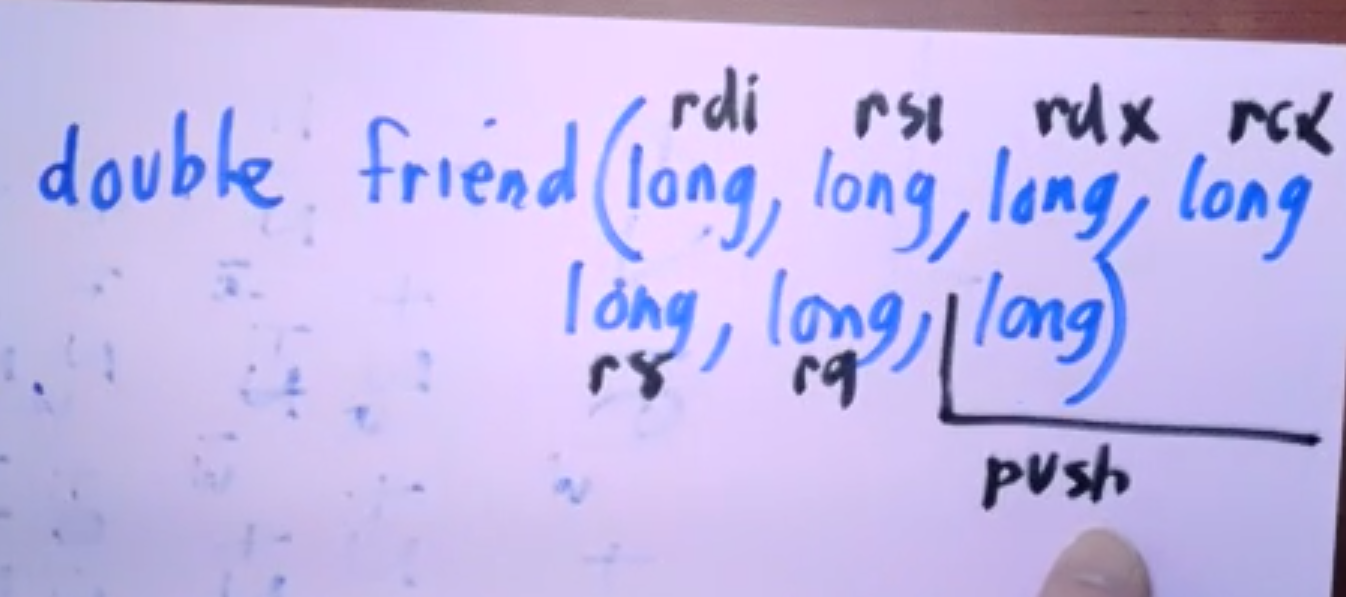 rdi rsi rdx rcx
double friend(long, long, long, long
long, long, long)
r8 r9
push